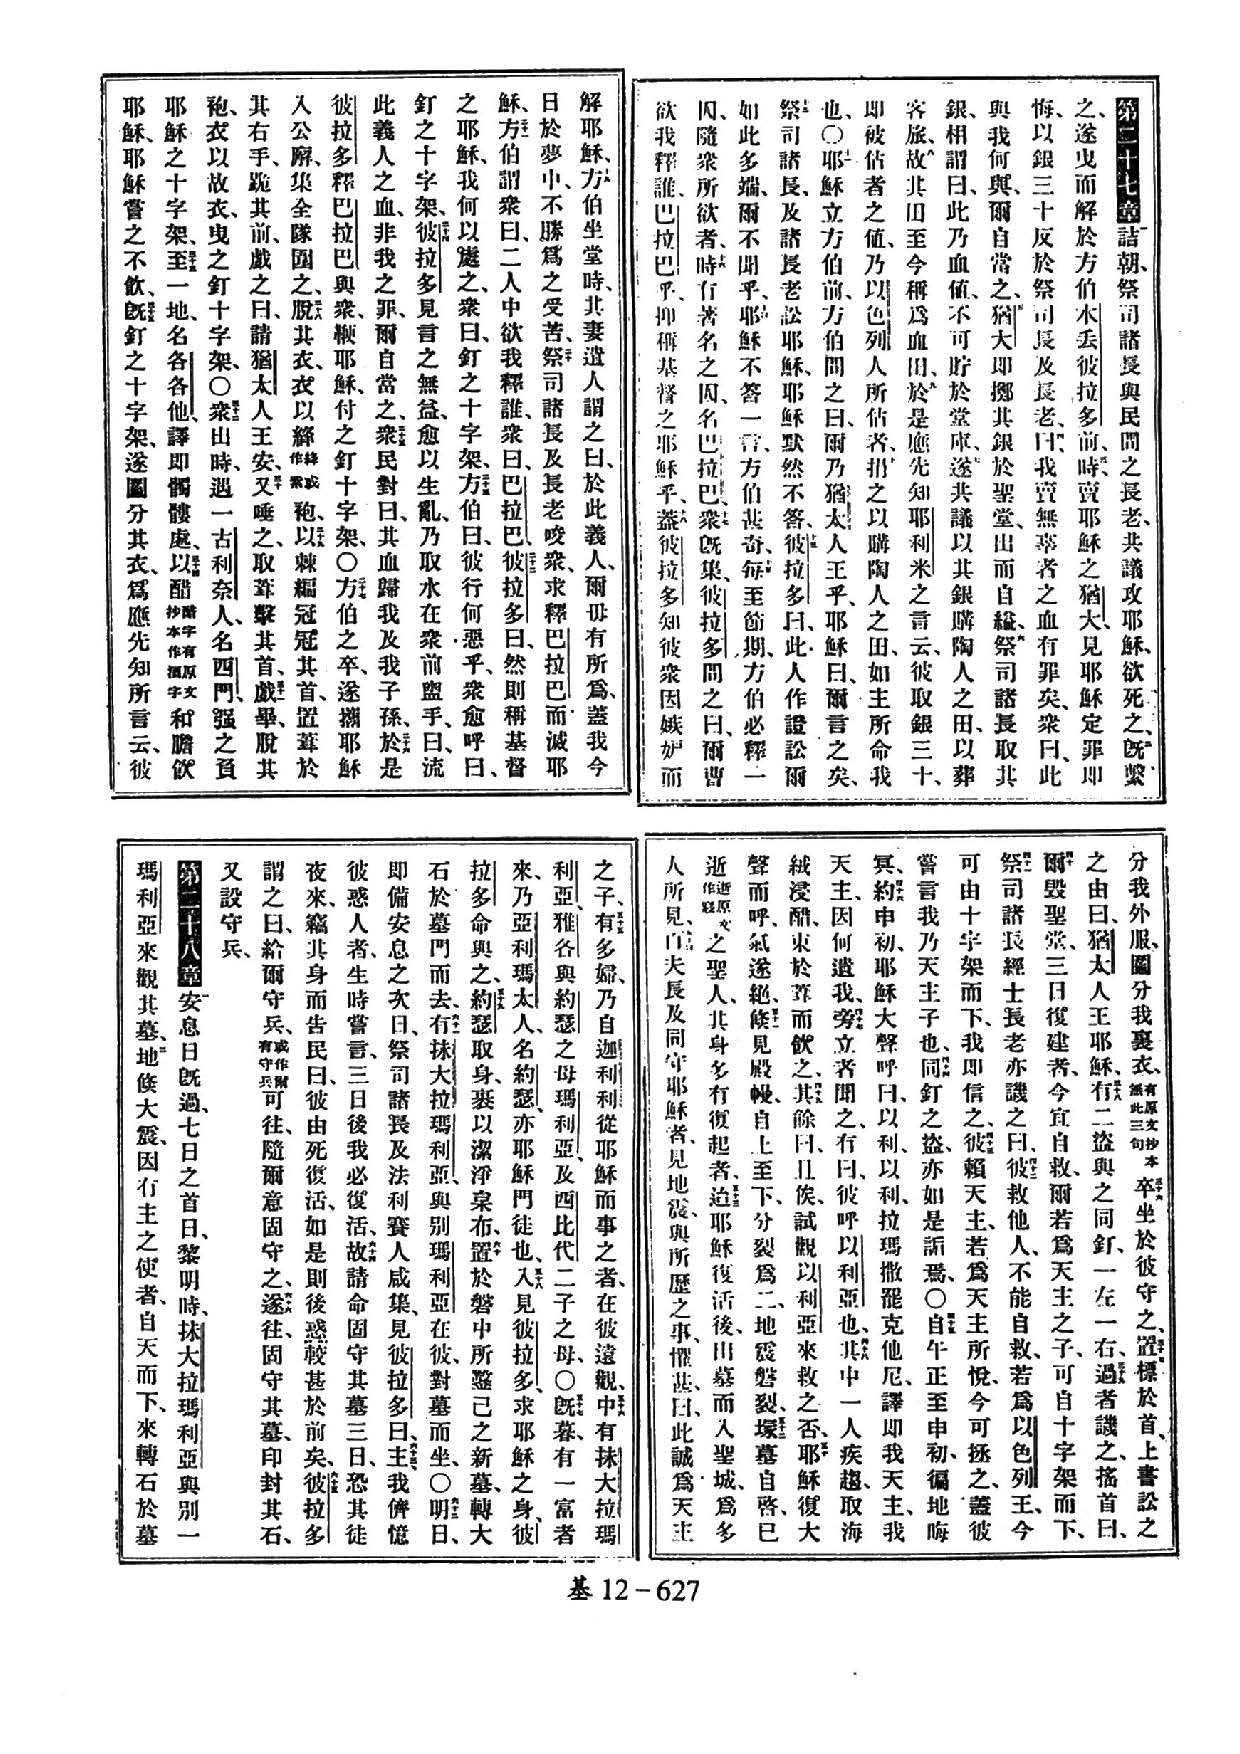 第二十七章詰朝、祭司諸長與民間之長老、共議攻耶穌、欲死之、旣繫
之、遂曳而解於方伯本丢彼拉多前、時、賣耶穌之猶大、見耶穌定罪、卽
悔、以銀三十反於祭司長及長老、曰、我賣無辜者之血有罪矣、衆曰、此
與我何與、爾自當之、猶大卽擲其銀於聖堂、出而自縊、祭司諸長取其
銀、相謂曰、此乃血値、不可貯於堂庫、遂共議以其銀購陶人之田、以葬
客旅、故其田至今稱爲血田、於是應先知耶利米之言云、彼取銀三十、
卽被估者之値、乃以色列人所估者、捐之以購陶人之田、如主所命我
也、〇耶穌立方伯前、方伯問之曰、爾乃猶太人王乎、耶穌曰、爾言之矣、
祭司諸長、及諸長老訟耶穌、耶穌默然不答、彼拉多曰、此人作證訟爾
如此多端、爾不聞乎、耶穌不答一言、方伯甚奇、每至節期、方伯必釋一
囚、隨衆所欲者、時有著名之囚、名巴拉巴、衆旣集、彼拉多問之曰、爾曹
欲我釋誰、巴拉巴乎、抑稱基督之耶穌乎、蓋彼拉多知彼衆因嫉妒而
解耶穌、方伯坐堂時、其妻遣人謂之曰、於此義人、爾毋有所爲、蓋我今
日於夢中、不勝爲之受苦、祭司諸長及長老唆衆、求釋巴拉巴而滅耶
穌、方伯謂衆曰、二人中欲我釋誰、衆曰、巴拉巴、彼拉多曰、然則稱基督
之耶穌、我何以處之、衆曰、釘之十字架、方伯曰、彼行何惡乎、衆愈呼曰、
釘之十字架、彼拉多見言之無益、愈以生亂、乃取水在衆前盥手、曰、流
此義人之血、非我之罪、爾自當之、衆民對曰、其血歸我及我子孫、於是
彼拉多釋巴拉巴與衆、鞭耶穌、付之釘十字架〇方伯之卒、遂攜耶穌
入公廨、集全隊圍之、脫其衣、衣以絳絳或作紫袍、以棘編冠冠其首、置葦於
其右手、跪其前、戲之曰、請猶太人王安、又唾之、取葦擊其首、戲畢、脫其
袍、衣以故衣、曳之釘十字架、〇衆出時、遇一古利奈人、名西門、强之負
耶穌之十字架、至一地名各各他、譯卽髑髏處、以醋醋字有原文抄本作酒字和膽飲
耶穌、耶穌嘗之不飲、旣釘之十字架、遂鬮分其衣、爲應先知所言云、彼
分我外服、鬮分我裏衣、有原文抄本無此三句卒坐於彼守之、置標於首、上書訟之
之由曰、猶太人王耶穌、有二盜與之同釘、一左一右、過者譏之、搖首曰、
爾毀聖堂、三日復建者、今宜自救、爾若爲天主之子、可自十字架而下、
祭司諸長經士長老亦譏之曰、彼救他人、不能自救、若爲以色列王、今
可由十字架而下、我卽信之、彼賴天主、若爲天主所悅、今可拯之、蓋彼
嘗言我乃天主子也、同釘之盜、亦如是詬焉、〇自午正至申初、徧地晦
冥、約申初、耶穌大聲呼曰、以利、以利、拉瑪撒罷克他尼、譯卽我天主、我
天主、因何遺我、旁立者聞之、有曰、彼呼以利亞也、其中一人疾趨、取海
絨浸醋、束於葦而飲之、其餘曰、且俟、試觀以利亞來救之否、耶穌復大
聲而呼、氣遂絕、倏見殿幔、自上至下、分裂爲二、地震磐裂、塚墓自啓、已
逝逝原文作寢之聖人、其身多有復起者、迨耶穌復活後、出墓而入聖城、爲多
人所見、百夫長及同守耶穌者、見地震、與所歷之事、懼甚、曰、此誠爲天主
之子、有多婦、乃自迦利利從耶穌而事之者、在彼遠觀、中有抹大拉瑪
利亞、雅各與約瑟之母瑪利亞、及西比代二子之母、〇旣暮、有一富者
來、乃亞利瑪太人、名約瑟、亦耶穌門徒也、入見彼拉多、求耶穌之身、彼
拉多命與之、約瑟取身、裹以潔淨枲布、置於磐中所鑿己之新墓、轉大
石於墓門而去、有抹大拉瑪利亞、與別瑪利亞在彼、對墓而坐、〇明日、
卽備安息之次日、祭司諸長及法利賽人咸集、見彼拉多曰、主、我儕憶
彼惑人者、生時嘗言、三日後我必復活、故請命固守其墓三日、恐其徒
夜來、竊其身而告民曰、彼由死復活、如是則後惑較甚於前矣、彼拉多
謂之曰、給爾守兵、或作爾有守兵可往、隨爾意固守之、遂往、固守其墓、印封其石、
又設守兵、
第二十八章安息日旣過、七日之首日、黎明時、抹大拉瑪利亞與別一
瑪利亞來觀其墓、地倏大震、因有主之使者、自天而下、來轉石於墓
基 12-627